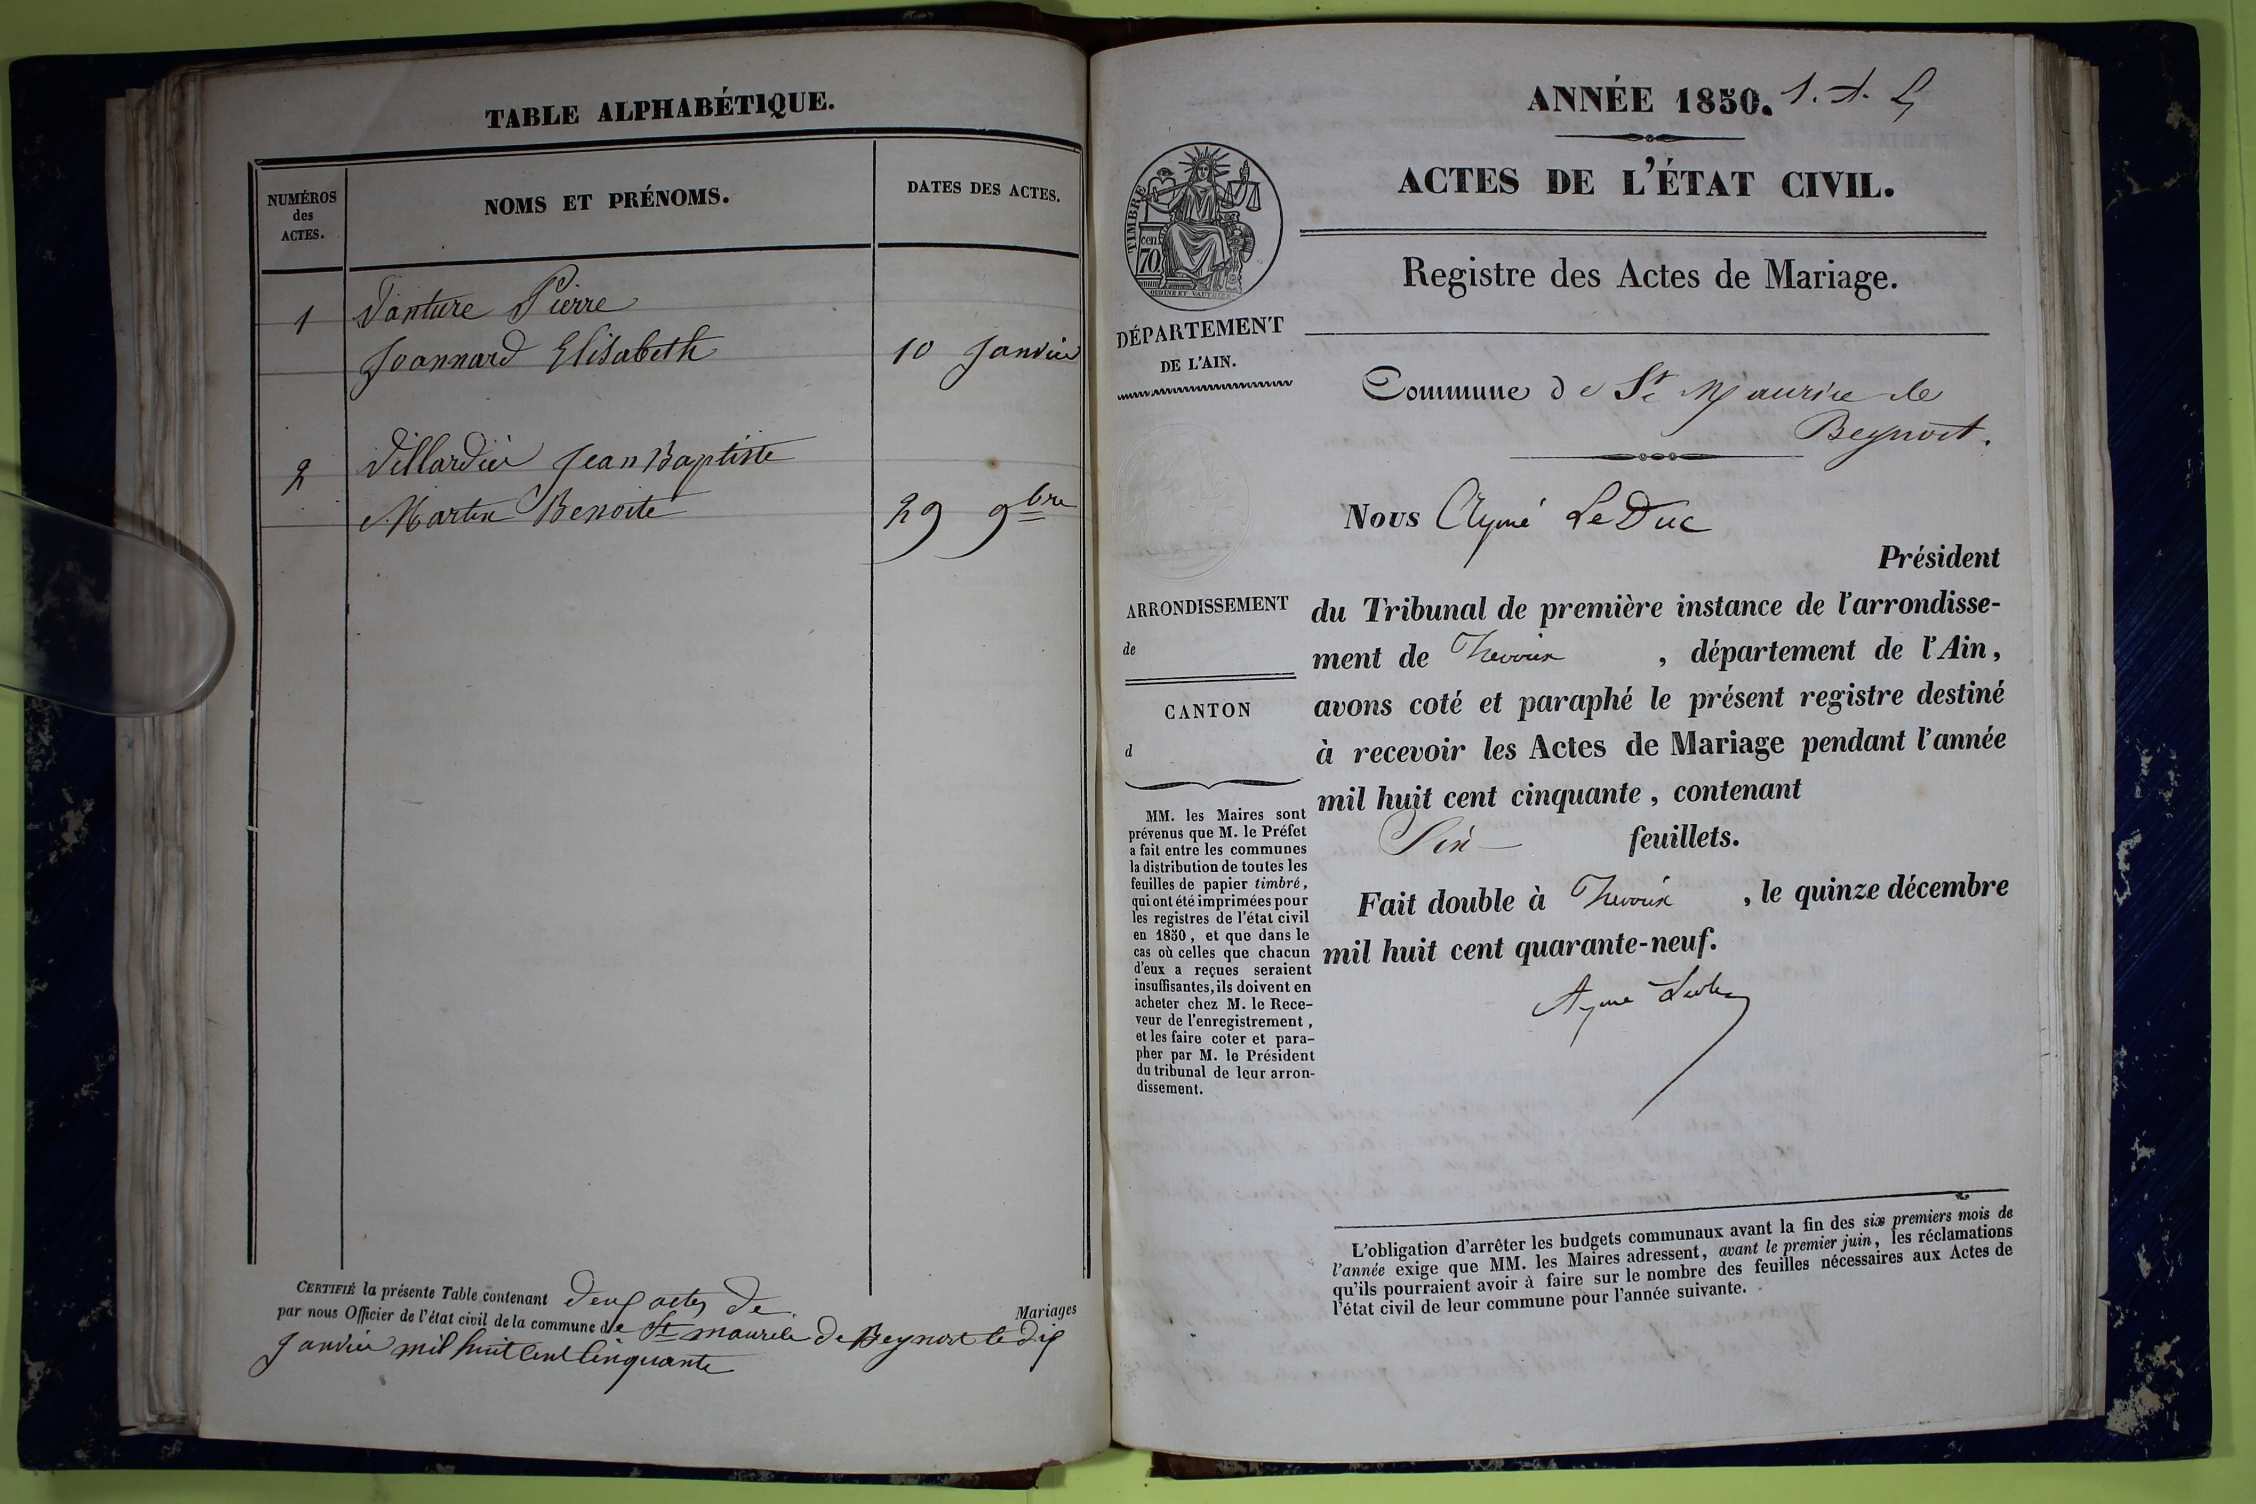 TABLE ALPHABÉTIQUE.
NUMÉROS
des
ACTES.
NOMS ET PRÉNOMS.
DATES DES ACTES.
1
Vanture Pierre
Joannard Elisabeth
10 Janvier
2
Villardier Jean Baptiste
Martin Benoite
29 9bre
CERTIFIÉ la présente Table contenant deux actes de Mariages
par nous Officier de l'état civil de la commune de St maurice de Beynost le dix
janvier mil huit cent cinquante
ANNÉE 1850. 1. A. L
ACTES DE L'ÉTAT CIVIL.
Registre des Actes de Mariage.
TIMBRE
cen.
70
DÉPARTEMENT
DE L'AIN.
Commune de St Maurice de
Beynost.
Nous Aymé Le Duc
Président
du Tribunal de première instance de l'arrondisse-
ment de Trevoux , département de l'Ain,
avons coté et paraphé le présent registre destiné
à recevoir les Actes de Mariage pendant l'année
mil huit cent cinquante, contenant
Six feuillets.
Fait double à Trevoux , le quinze décembre
mil huit cent quarante-neuf.
Aymé Leduc
ARRONDISSEMENT
de
CANTON
d
MM. les Maires sont
prévenus que M. le Préfet
a fait entre les communes
la distribution de toutes les
feuilles de papier timbré,
qui ont été imprimées pour
les registres de l'état civil
en 1850, et que dans le
cas où celles que chacun
d'eux a reçues seraient
insuffisantes, ils doivent en
acheter chez M. le Rece-
veur de l'enregistrement,
et les faire coter et para-
pher par M. le Président
du tribunal de leur arron-
dissement.
L'obligation d'arrêter les budgets communaux avant la fin des six premiers mois de
l'année exige que MM. les Maires adressent, avant le premier juin, les réclamations
qu'ils pourraient avoir à faire sur le nombre des feuilles nécessaires aux Actes de
l'état civil de leur commune pour l'année suivante.